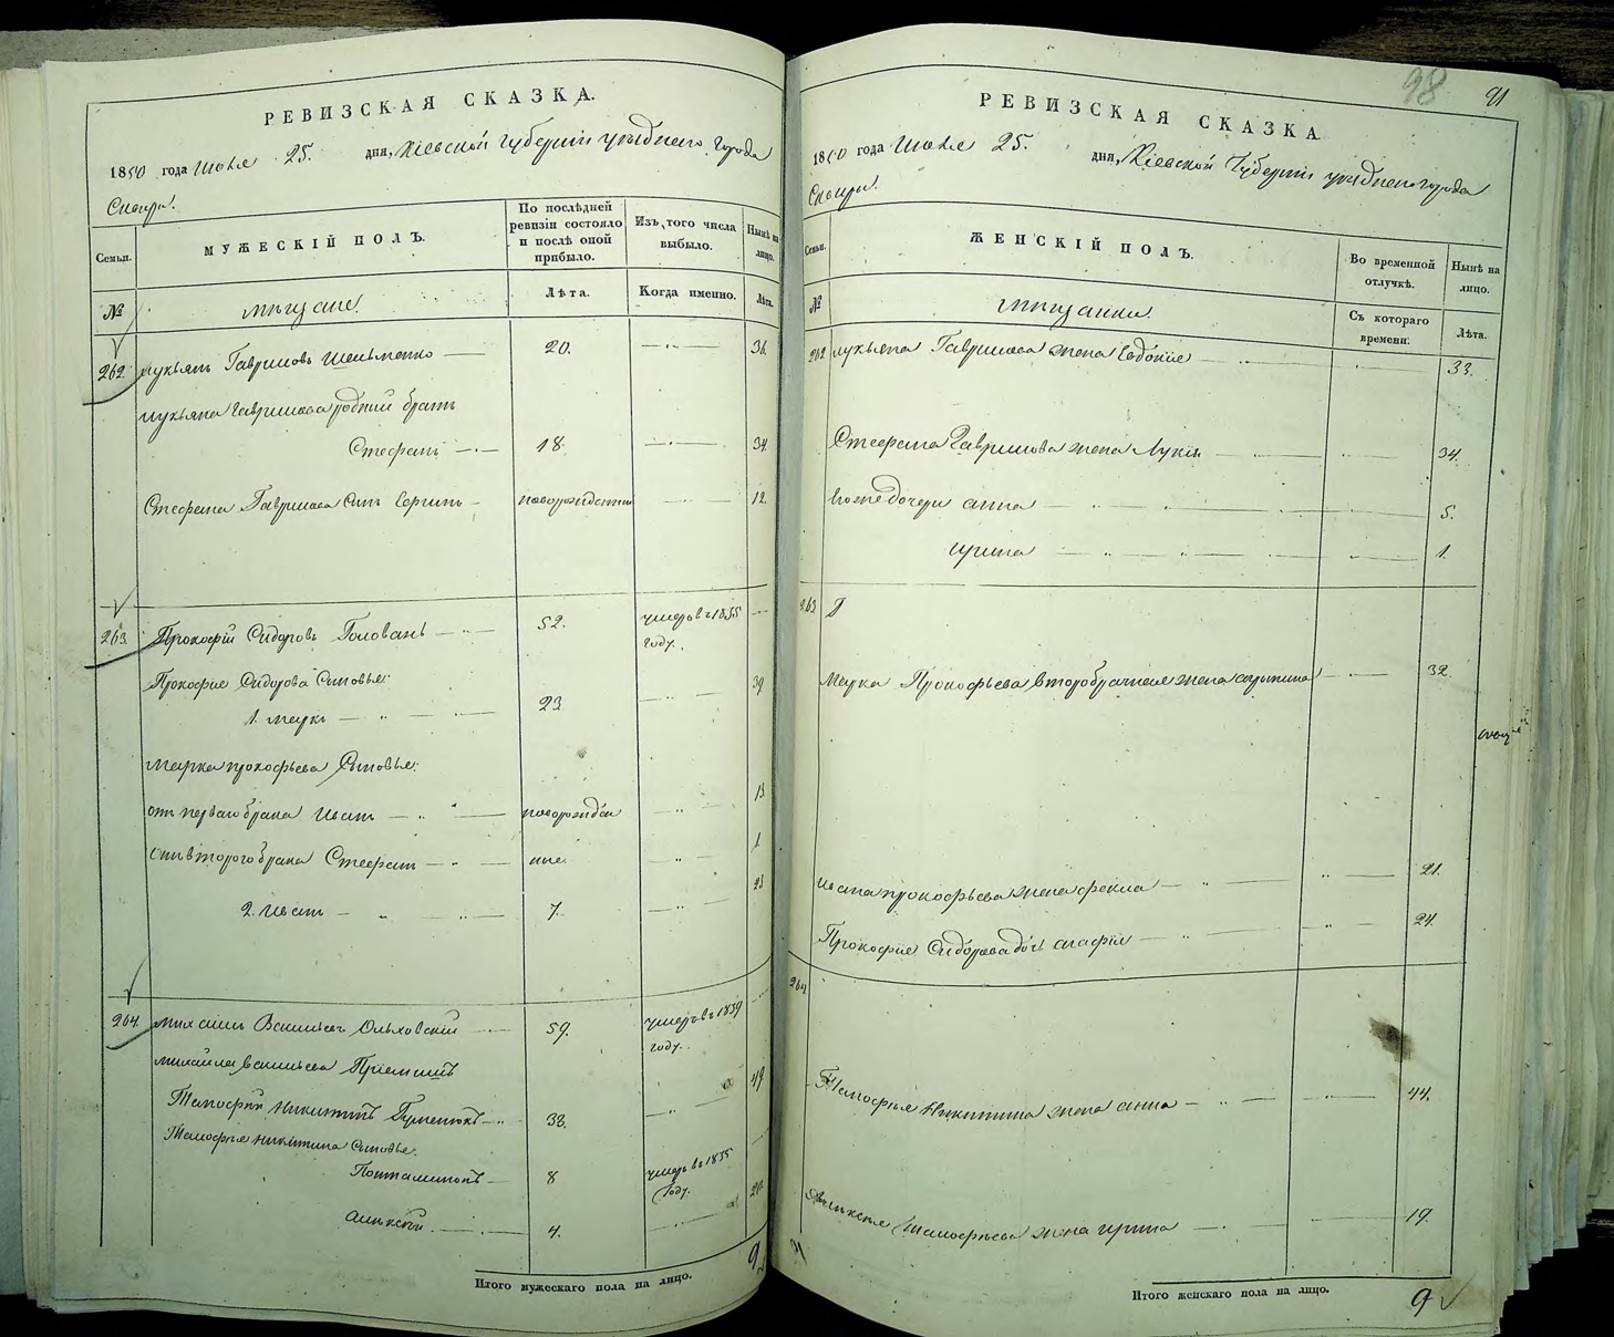 РЕВИЗСКАЯ СКАЗКА.
1850 года Июля 25. дня, Кіевской Губерніи уѣзднаго города
Сквиры.
Семьи.
МУЖЕСКІЙ ПОЛЪ.
По послѣдней ревизіи состояло и послѣ оной прибыло.
Изъ того числа выбыло.
Нынѣ на лицо.
№
мѣщане.
Лѣта.
Когда именно.
Лѣта.
262. Лукьянъ Гавриловъ 20. 36.
Лукьяна Гаврилова родний братъ
Стефанъ 18. 34.
Стефана Гаврилова сынъ Сергій новорожденный 12.
263. Прокофій Сидоровъ Голованъ 52. умеръ въ 1835
году.
Прокофія Сидорова сыновья:
1. Марко 23 39
Марка Прокофьева сыновья:
отъ перваго брака Иванъ новорожден 13.
отъ втораго брака Стефанъ ные 1
2. Иванъ 7. 23
264. Михаилъ Васильевъ Ольховскій 59. умеръ въ 1839
году.
Михаила Васильева Приемишъ
Тимофій Никитинъ Гуменюкъ 33. 49
Тимофія Никитина сыновья.
Понталимонъ 8 умеръ въ 1835
году.
Алексѣй 4. 20.
Итого мужескаго пола на лицо. 9
98 91
РЕВИЗСКАЯ СКАЗКА
1850 года Июля 25. дня, Кіевской Губерніи уѣзднаго города
Сквиры.
Семьи.
ЖЕНСКІЙ ПОЛЪ.
Во временной отлучкѣ.
Нынѣ на лицо.
№
мѣщанки.
Съ котораго времени.
Лѣта.
262 Лукьяна Гаврилова жена Евдокія 33.
Стефана Гаврилова жена Лукія 34.
Его же дочери Анна 5.
Ирина 1.
263
Марка Прокофьева второбрачная жена 32.
Ивана Прокофьева жена Фекла 21.
Прокофія Сидорова дочь Агафія 24.
264
Тимофія Никитина жена Анна 44.
Алексія Тимофѣева жена Ирина 19.
Итого женскаго пола на лицо. 9